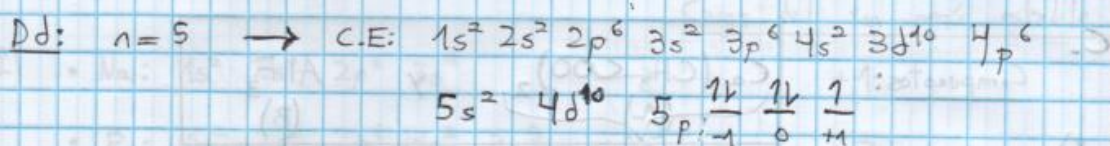 Dd: n=5 → C.E: 1s² 2s² 2p⁶ 3s² 3p⁶ 4s² 3d¹⁰ 4p⁶
5s² 4d¹⁰ 5p: 1L 1L 1
-1 0 +1